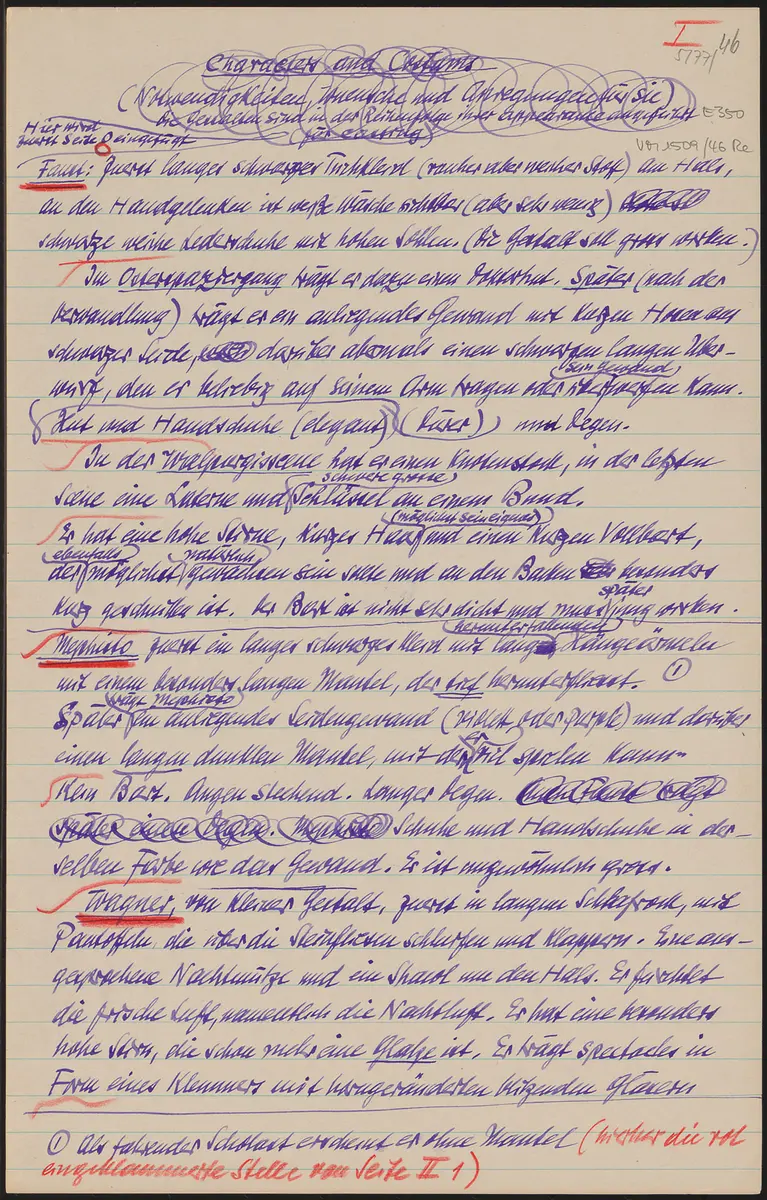 I 46
5177/
Characters and Costums
(Notwendigkeiten, Wuensche und Anregungen für Sie)
Die Gestalten sind in der Reihenfolge ihrer Appearance angeführt
(für casting)
E350
VM 1509/46 Re
Hier wird
zuerst Seite 0 eingefügt
Faust: Zuerst langes schwarzes Tuchkleid (rauher aber weicher Stoff) am Hals,
an den Handgelenken ist weiße Wäsche sichtbar (aber sehr wenig)
schwarze weiche Lederschuhe mit hohen Sohlen. (Die Gestalt soll gross wirken.)
Im Osterspaziergang trägt er dazu einen Doktorhut. Später (nach der
Verwandlung) trägt er ein anliegendes Gewand mit kurzen Hosen aus
schwarzer Seide, darüber abermals einen schwarzen langen Über-
wurf, den er beliebig auf seinem Arm tragen oder über sein Gewand werfen kann.
Hut und Handschuhe (elegant) (Dürer) und Degen.
In der Walpurgisscene hat er einen Knotenstock, in der letzten
Scene eine Laterne und schwere grosse Schlüssel an einem Bund.
Er hat eine hohe Stirne, kurzes Haar (möglichst sein eignes) und einen kurzen Vollbart,
der ebenfalls möglichst natürlich gewachsen sein sollte und an den Backen besonders
kurz geschnitten ist. Der Bart ist nicht sehr dicht und muss später jung wirken.
Mephisto zuerst ein langes schwarzes Kleid mit lang herunterfallenden Hängeärmeln
mit einem besonders langen Mantel, der tief herunterfliesst. ①
Später trägt Mephisto ein anliegendes Seidengewand (violett oder purple) und darüber
einen langen dunklen Mantel, mit dem er viel spielen kann.
Kein Bart. Augen stechend. Langer Degen.
Schuhe und Handschuhe in der-
selben Farbe wie das Gewand. Er ist ungewöhnlich gross.
Wagner, von kleiner Gestalt, zuerst in langem Schlafrock, mit
Pantoffeln, die über die Steinfliesen schlurfen und klappern. Eine aus-
gesprochene Nachtmütze und ein Shawl um den Hals. Er fürchtet
die frische Luft, namentlich die Nachtluft. Er hat eine besonders
hohe Stirn, die schon mehr eine Glatze ist. Er trägt spectacles in
Form eines Klemmers mit horngeränderten blitzenden Gläsern
① Als fahrender Scholast erscheint er ohne Mantel (hierher die rot
eingeklammerte Stelle von Seite II 1)